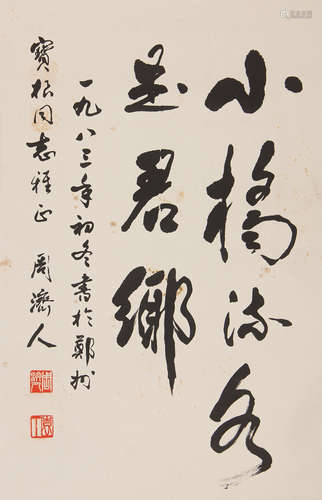 小橋流水
是君鄉
一九八三年初冬書於鄭州
寶松同志雅正 周濟人